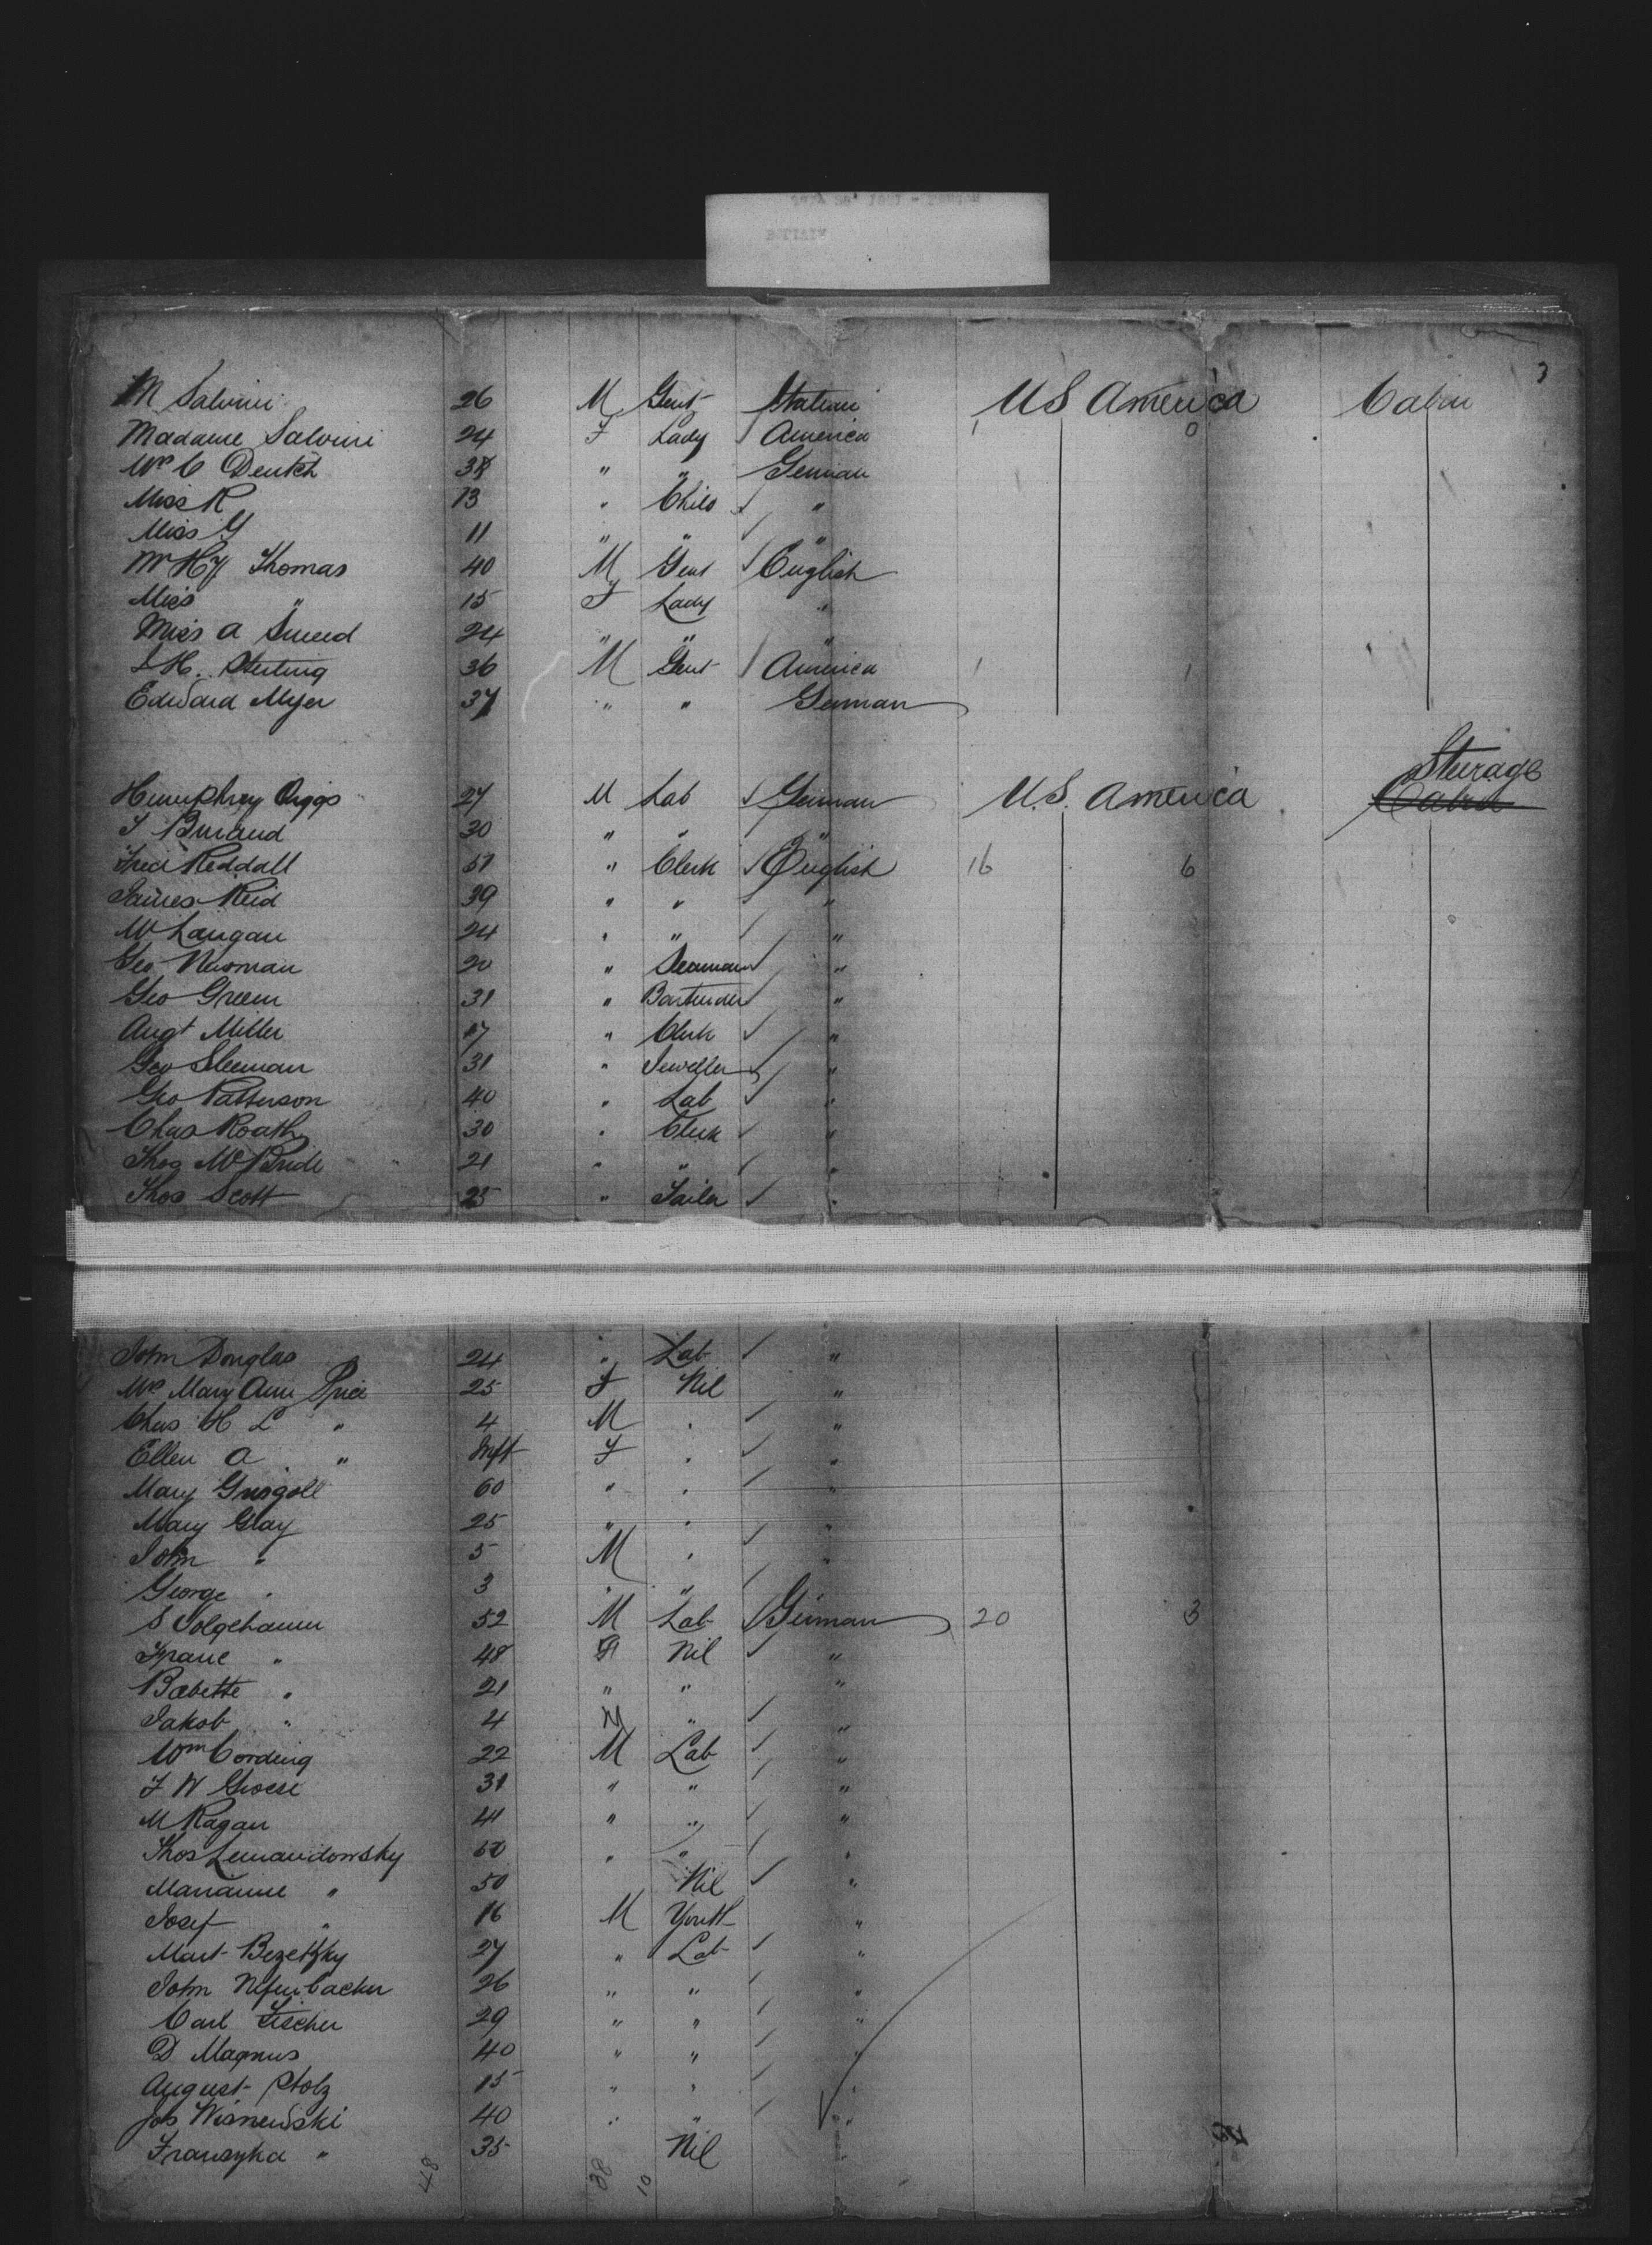 3
M Salvini 26 M Gent Italian U S America Cabin
Madame Salvini 24 F Lady America 1 0
Mrs C Deutch 38 " " German
Miss R 13 " Child "
Miss G 11 " " "
Mr Hy Thomas 40 M Gent English
Miss " 15 F Lady "
Miss A Sneed 24 " " "
L H. Sterling 36 M Gent America 1 1
Edward Myer 37 " " German
Sterage
Humphrey Griggs 27 M Lab German U.S. America Cabin
J Buraud 30 " " "
Fred Reddall 51 " Clerk English 16 6
James Reid 39 " " "
W Langan 24 " " "
Geo Newman 20 " Seaman "
Geo Green 31 " Bartender "
Augt Miller 17 " Clerk "
Geo Sleeman 31 " Jeweller "
Geo Patterson 40 " Lab "
Chas Roath 30 " Clerk "
Thos McBride 21 " " "
Thos Scott 25 " Tailor "
John Douglas 24 " Lab "
Mrs Mary Ann Price 25 F Nil "
Chas H L " 4 M " "
Ellen A " Inft F " "
Mary 60 " " "
Mary Gray 25 " " "
John " 5 M " "
George " 3 " " "
S 52 M Lab German 20 3
" 48 F Nil "
Babette " 21 " " "
Jakob " 4 M " "
Wm Cording 22 M Lab "
F W Groese 31 " " "
M Ragan 41 " " "
Thos Lemandowsky 50 " " "
Marianne " 50 Nil "
Josef " 16 M Youth "
Mart Bezetzky 27 " Lab "
John Nefenbacker 26 " " "
Carl Fischer 29 " " "
D Magnus 40 " " "
August Stolz 15 " " "
Jos Wisnewski 40 " " "
Franzyka " 35 Nil "
48 38 10